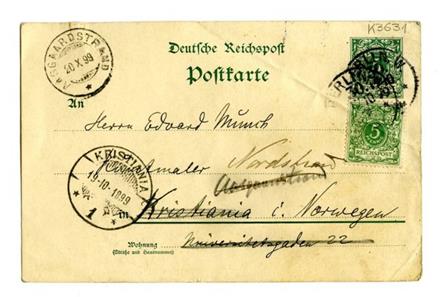 K3631
AASGAARDSTRAND
20 X 99
Deutsche Reichspost
Postkarte
BERLIN W
An
Herrn Edvard Munch
5
REICHSPOST
KRISTIANIA
19-10-1899
1
Nordstrand
Aasgaardstrand
in Kristiania i. Norwegen
Wohnung
(Straße und Hausnummer)
Universitetsgaden 22